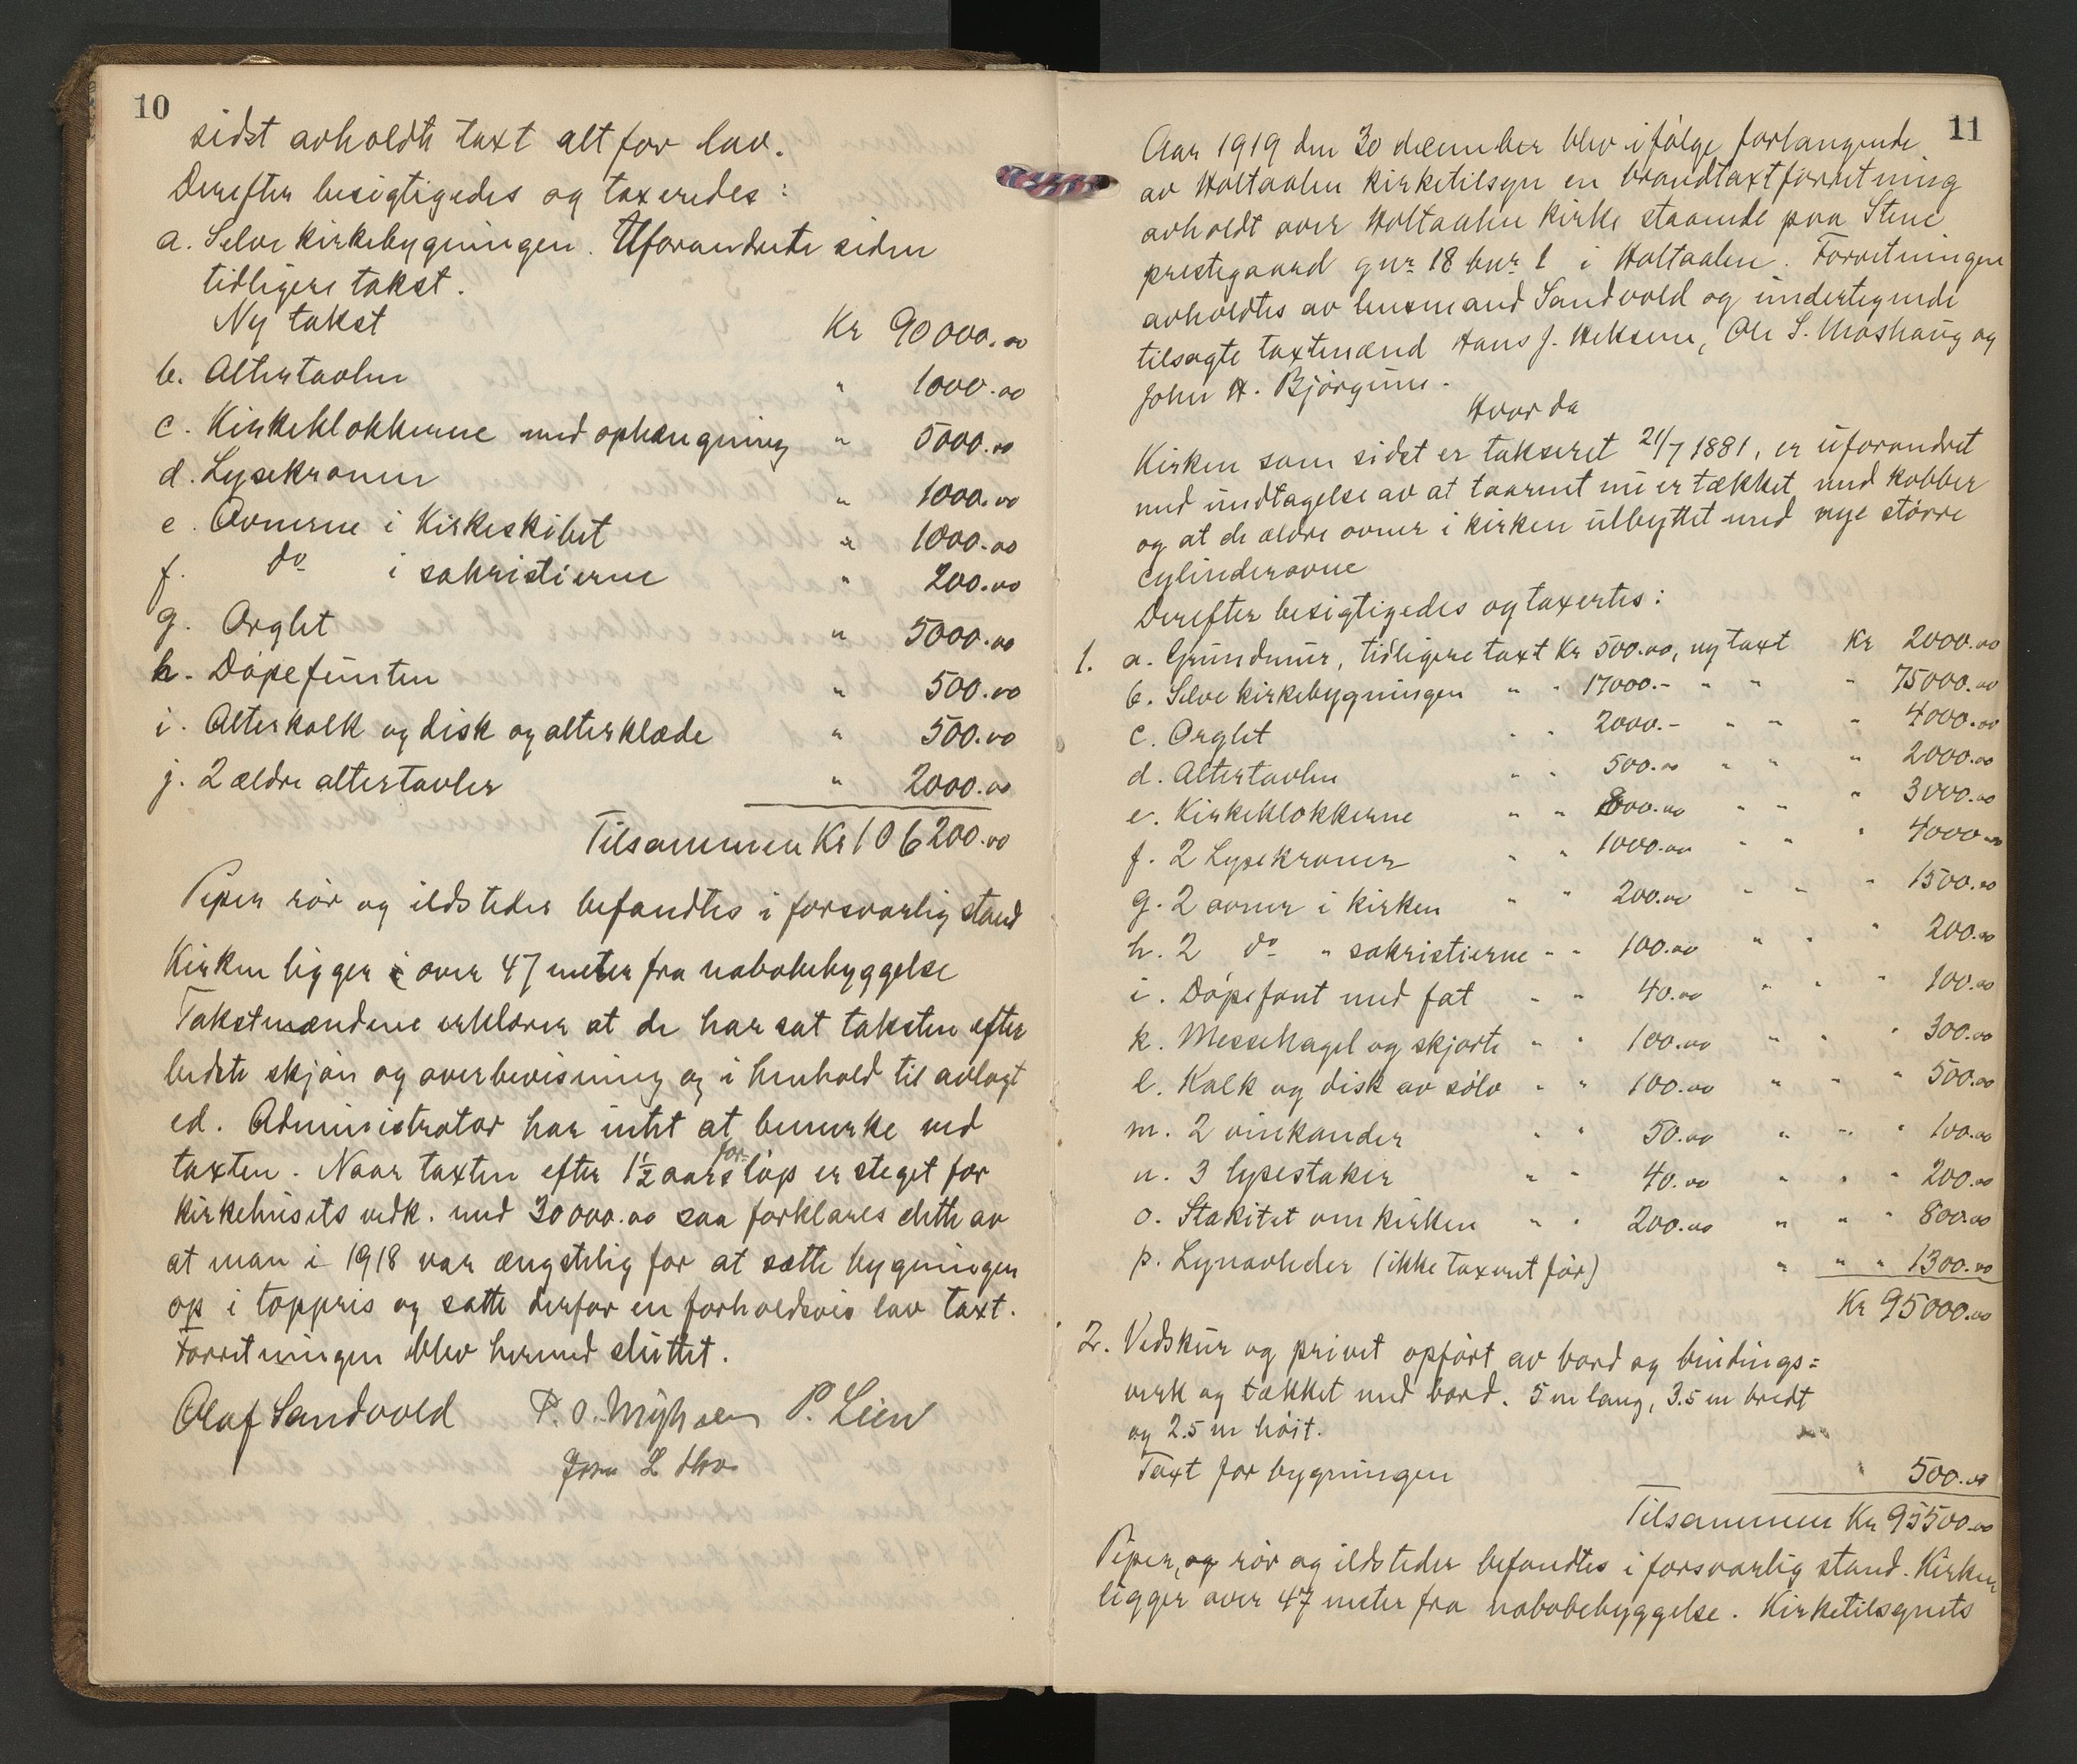 10
sidst avholdte taxt alt for lav.
Derefter besigtigedes og taxeredes:
a. Selve kirkebygningen. Uforandrete siden
tidligere takst.
Ny takst Kr 90000.00
b. Altertavlen " 1000.00
c. Kirkeklokkerne med ophængning " 5000.00
d. Lysekronen " 1000.00
e. Ovnerne i Kirkeskibet " 1000.00
f. do i sakristierne " 200.00
g. Orglet " 5000.00
h. Døpefunten " 500.00
i. Alterkalk og disk og alterklæde " 500.00
j. 2 ældre altertavler " 2000.00
Tilsammen Kr 106200.00
Piper rør og ildsteder befandtes i forsvarlig stand
Kirken ligger over 47 meter fra nabobebyggelse
Takstmændene erklærer at de har sat taksten efter
bedste skjøn og overbevisning og i henhold til avlagt
ed. Administrator har intet at bemerke ved
taxten. Naar taxten efter 1½ aars forløp er steget for
kirkehusets vedk. med 30000.00 saa forklares dette av
at man i 1918 var ængstelig for at sætte bygningen
op i toppris og satte derfor en forholdsvis lav taxt.
Forretningen blev hermed sluttet.
Olaf Sandvold P. O. P. Lien
11
Aar 1919 den 30 december blev ifølge forlangende
av Holtaalen kirketilsyn en brandtaxtforretning
avholdt over Holtaalen kirke staaende paa Stene
prestegaard gnr 18 bnr 1 i Holtaalen. Forretningen
avholdtes av lensmand Sandvold og undertegnede
tilsagte taxtmænd Hans J. Heksem, Ole S. Moshaug og
John H. Bjørgum.
Hvor da
Kirken som sidst er takseret 21/7 1881, er uforandret
med undtagelse av at taarnet nu er tækket med kobber
og at de ældre ovner i kirken utbyttet med nye større
cylinderovne
Derefter besigtigedes og taxertes:
1. a. Grundmur, tidligere taxt Kr 500.00, ny taxt Kr 2000.00
b. Selve kirkebygningen " " 17000.- " " " 75000.00
c. Orglet " " 2000.- " " " 4000.00
d. Altertavlen " " 500.00 " " " 2000.00
e. Kirkeklokkerne " " 800.00 " " " 3000.00
f. 2 Lysekroner " " 1000.00 " " " 4000.00
g. 2 ovner i kirken " " 200.00 " " " 1500.00
h. 2 do " sakristierne " " 100.00 " " " 200.00
i. Døpefont med fat " " 40.00 " " " 100.00
k. Messehagel og skjorte " " 100.00 " " " 300.00
l. Kalk og disk av sølv " " 100.00 " " " 500.00
m. 2 vinkander " " 50.00 " " " 100.00
n. 3 lysestaker " " 40.00 " " " 200.00
o. Stakitet om kirken " " 200.00 " " " 800.00
p. Lynavleder (ikke taxeret før) " " " 1300.00
Kr 95000.00
2. Vedskur og privet opført av bord og bindings=
verk og tækket med bord. 5 m lang, 3.5 m bredt
og 2.5 m høit.
Taxt for bygningen " 500.00
Tilsammen Kr 95500.00
Piper, og rør og ildsteder befandtes i forsvarlig stand. Kirken
ligger over 47 meter fra nabobebyggelse. Kirketilsynets